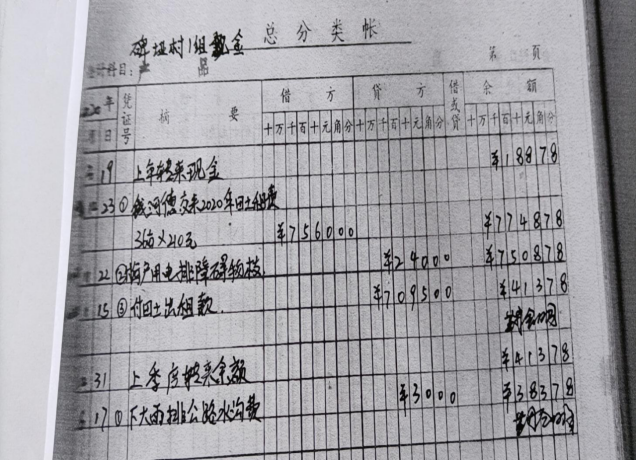 碑垭村1组现金 总分类帐
第 页
会计科目: 产品
年 凭证号 摘要 借方 贷方 借或贷 余额
月 日 十万千百十元角分 十万千百十元角分 十万千百十元角分
19 上年转来现金 ¥18878
23 ① 德交来2020年田土租费
36亩×210元 ¥756000 ¥774878
22 ② 用电排障碍物 ¥24000 ¥750878
15 ③ 付田土出租款 ¥709500 ¥41378
¥41378
31 上季度转来余额
17 ① 下大雨排公路水沟费 ¥3000 ¥38378